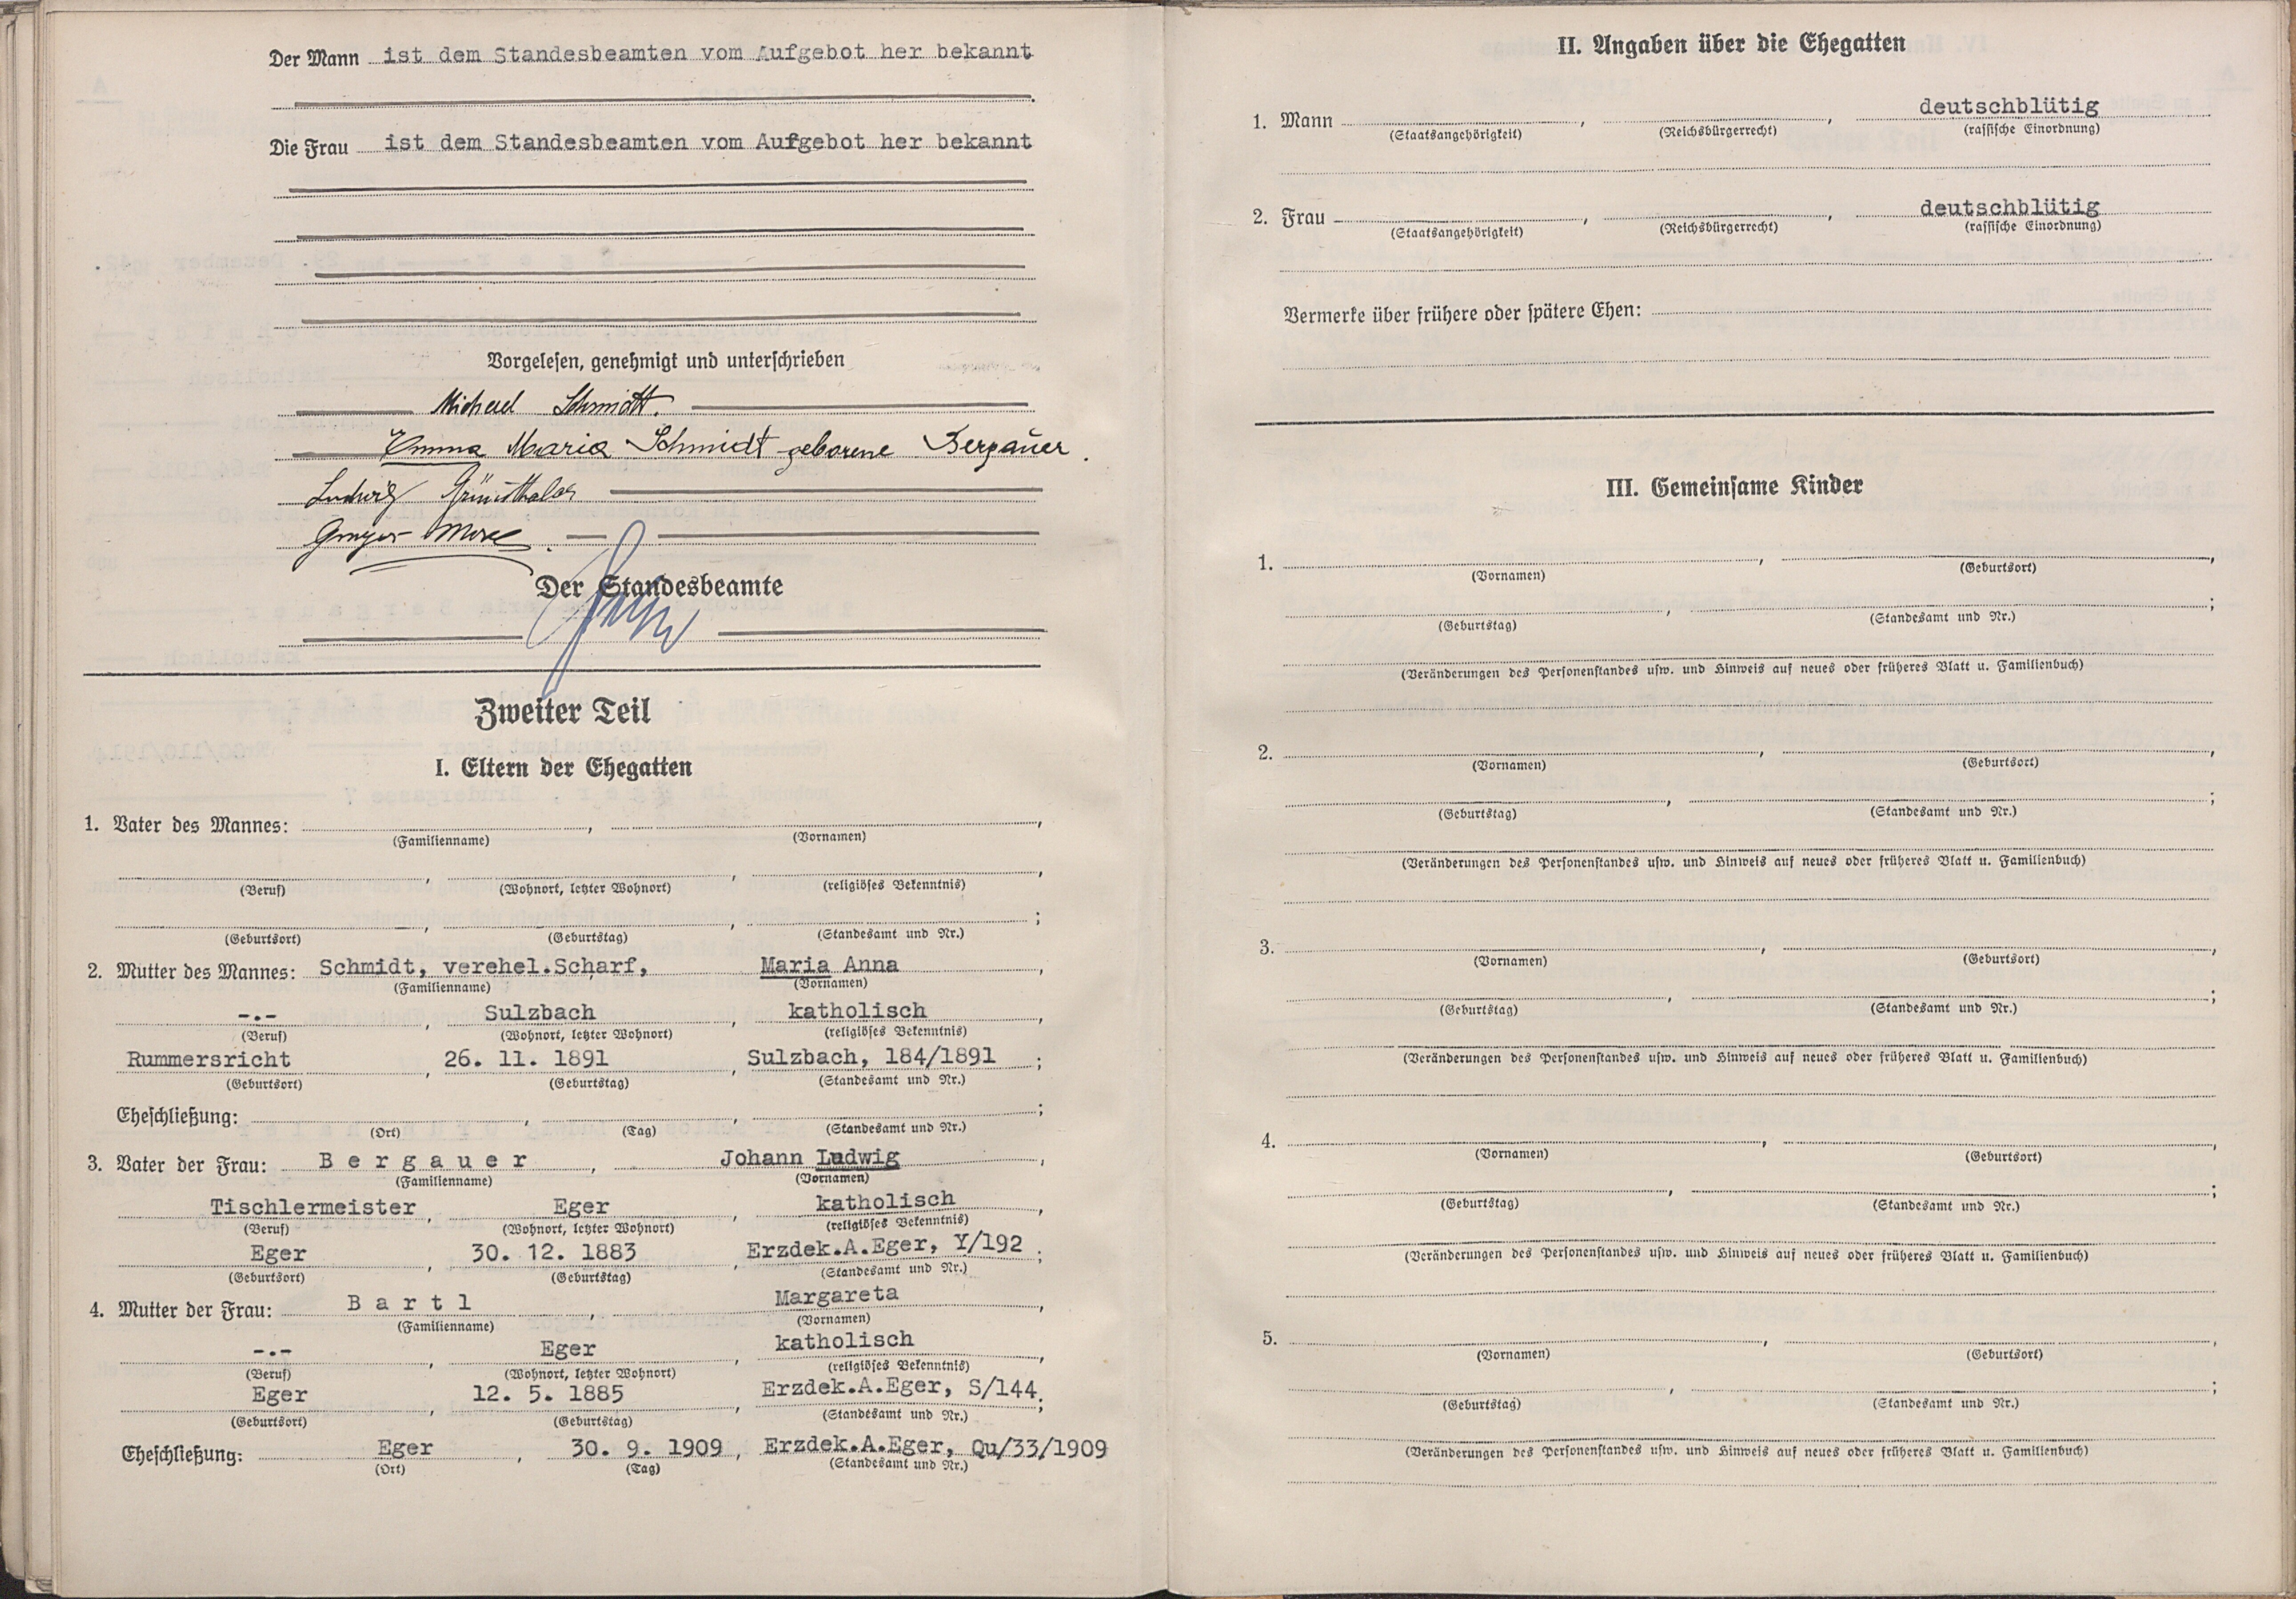 Der Mann ist dem Standesbeamten vom Aufgebot her bekannt
Die Frau ist dem Standesbeamten vom Aufgebot her bekannt
Vorgelesen, genehmigt und unterschrieben
Michael Schmidt.
Emma Maria Schmidt geborene Bergauer.
Ludwig Grünthaler
Gregor
Der Standesbeamte
Zweiter Teil
I. Eltern der Ehegatten
1. Vater des Mannes: , ,
(Familienname) (Vornamen)
, , ,
(Beruf) (Wohnort, letzter Wohnort) (religiöses Bekenntnis)
, , ;
(Geburtsort) (Geburtstag) (Standesamt und Nr.)
2. Mutter des Mannes: Schmidt, verehel.Scharf, Maria Anna ,
(Familienname) (Vornamen)
-.- , Sulzbach , katholisch ,
(Beruf) (Wohnort, letzter Wohnort) (religiöses Bekenntnis)
Rummersricht , 26. 11. 1891 , Sulzbach, 184/1891 ;
(Geburtsort) (Geburtstag) (Standesamt und Nr.)
Eheschließung: , , ;
(Ort) (Tag) (Standesamt und Nr.)
3. Vater der Frau: B e r g a u e r , Johann Ludwig ,
(Familienname) (Vornamen)
Tischlermeister , Eger , katholisch ,
(Beruf) (Wohnort, letzter Wohnort) (religiöses Bekenntnis)
Eger , 30. 12. 1883 , Erzdek.A.Eger, Y/192 ;
(Geburtsort) (Geburtstag) (Standesamt und Nr.)
4. Mutter der Frau: B a r t l , Margareta ,
(Familienname) (Vornamen)
-.- , Eger , katholisch ,
(Beruf) (Wohnort, letzter Wohnort) (religiöses Bekenntnis)
Eger , 12. 5. 1885 , Erzdek.A.Eger, S/144 ;
(Geburtsort) (Geburtstag) (Standesamt und Nr.)
Eheschließung: Eger , 30. 9. 1909 , Erzdek.A.Eger, Qu/33/1909
(Ort) (Tag) (Standesamt und Nr.)
II. Angaben über die Ehegatten
1. Mann , , deutschblütig
(Staatsangehörigkeit) (Reichsbürgerrecht) (rassische Einordnung)
2. Frau , , deutschblütig
(Staatsangehörigkeit) (Reichsbürgerrecht) (rassische Einordnung)
Vermerke über frühere oder spätere Ehen:
III. Gemeinsame Kinder
1. , ,
(Vornamen) (Geburtsort)
, ;
(Geburtstag) (Standesamt und Nr.)
(Veränderungen des Personenstandes usw. und Hinweis auf neues oder früheres Blatt u. Familienbuch)
2. , ,
(Vornamen) (Geburtsort)
, ;
(Geburtstag) (Standesamt und Nr.)
(Veränderungen des Personenstandes usw. und Hinweis auf neues oder früheres Blatt u. Familienbuch)
3. , ,
(Vornamen) (Geburtsort)
, ;
(Geburtstag) (Standesamt und Nr.)
(Veränderungen des Personenstandes usw. und Hinweis auf neues oder früheres Blatt u. Familienbuch)
4. , ,
(Vornamen) (Geburtsort)
, ;
(Geburtstag) (Standesamt und Nr.)
(Veränderungen des Personenstandes usw. und Hinweis auf neues oder früheres Blatt u. Familienbuch)
5. , ,
(Vornamen) (Geburtsort)
, ;
(Geburtstag) (Standesamt und Nr.)
(Veränderungen des Personenstandes usw. und Hinweis auf neues oder früheres Blatt u. Familienbuch)